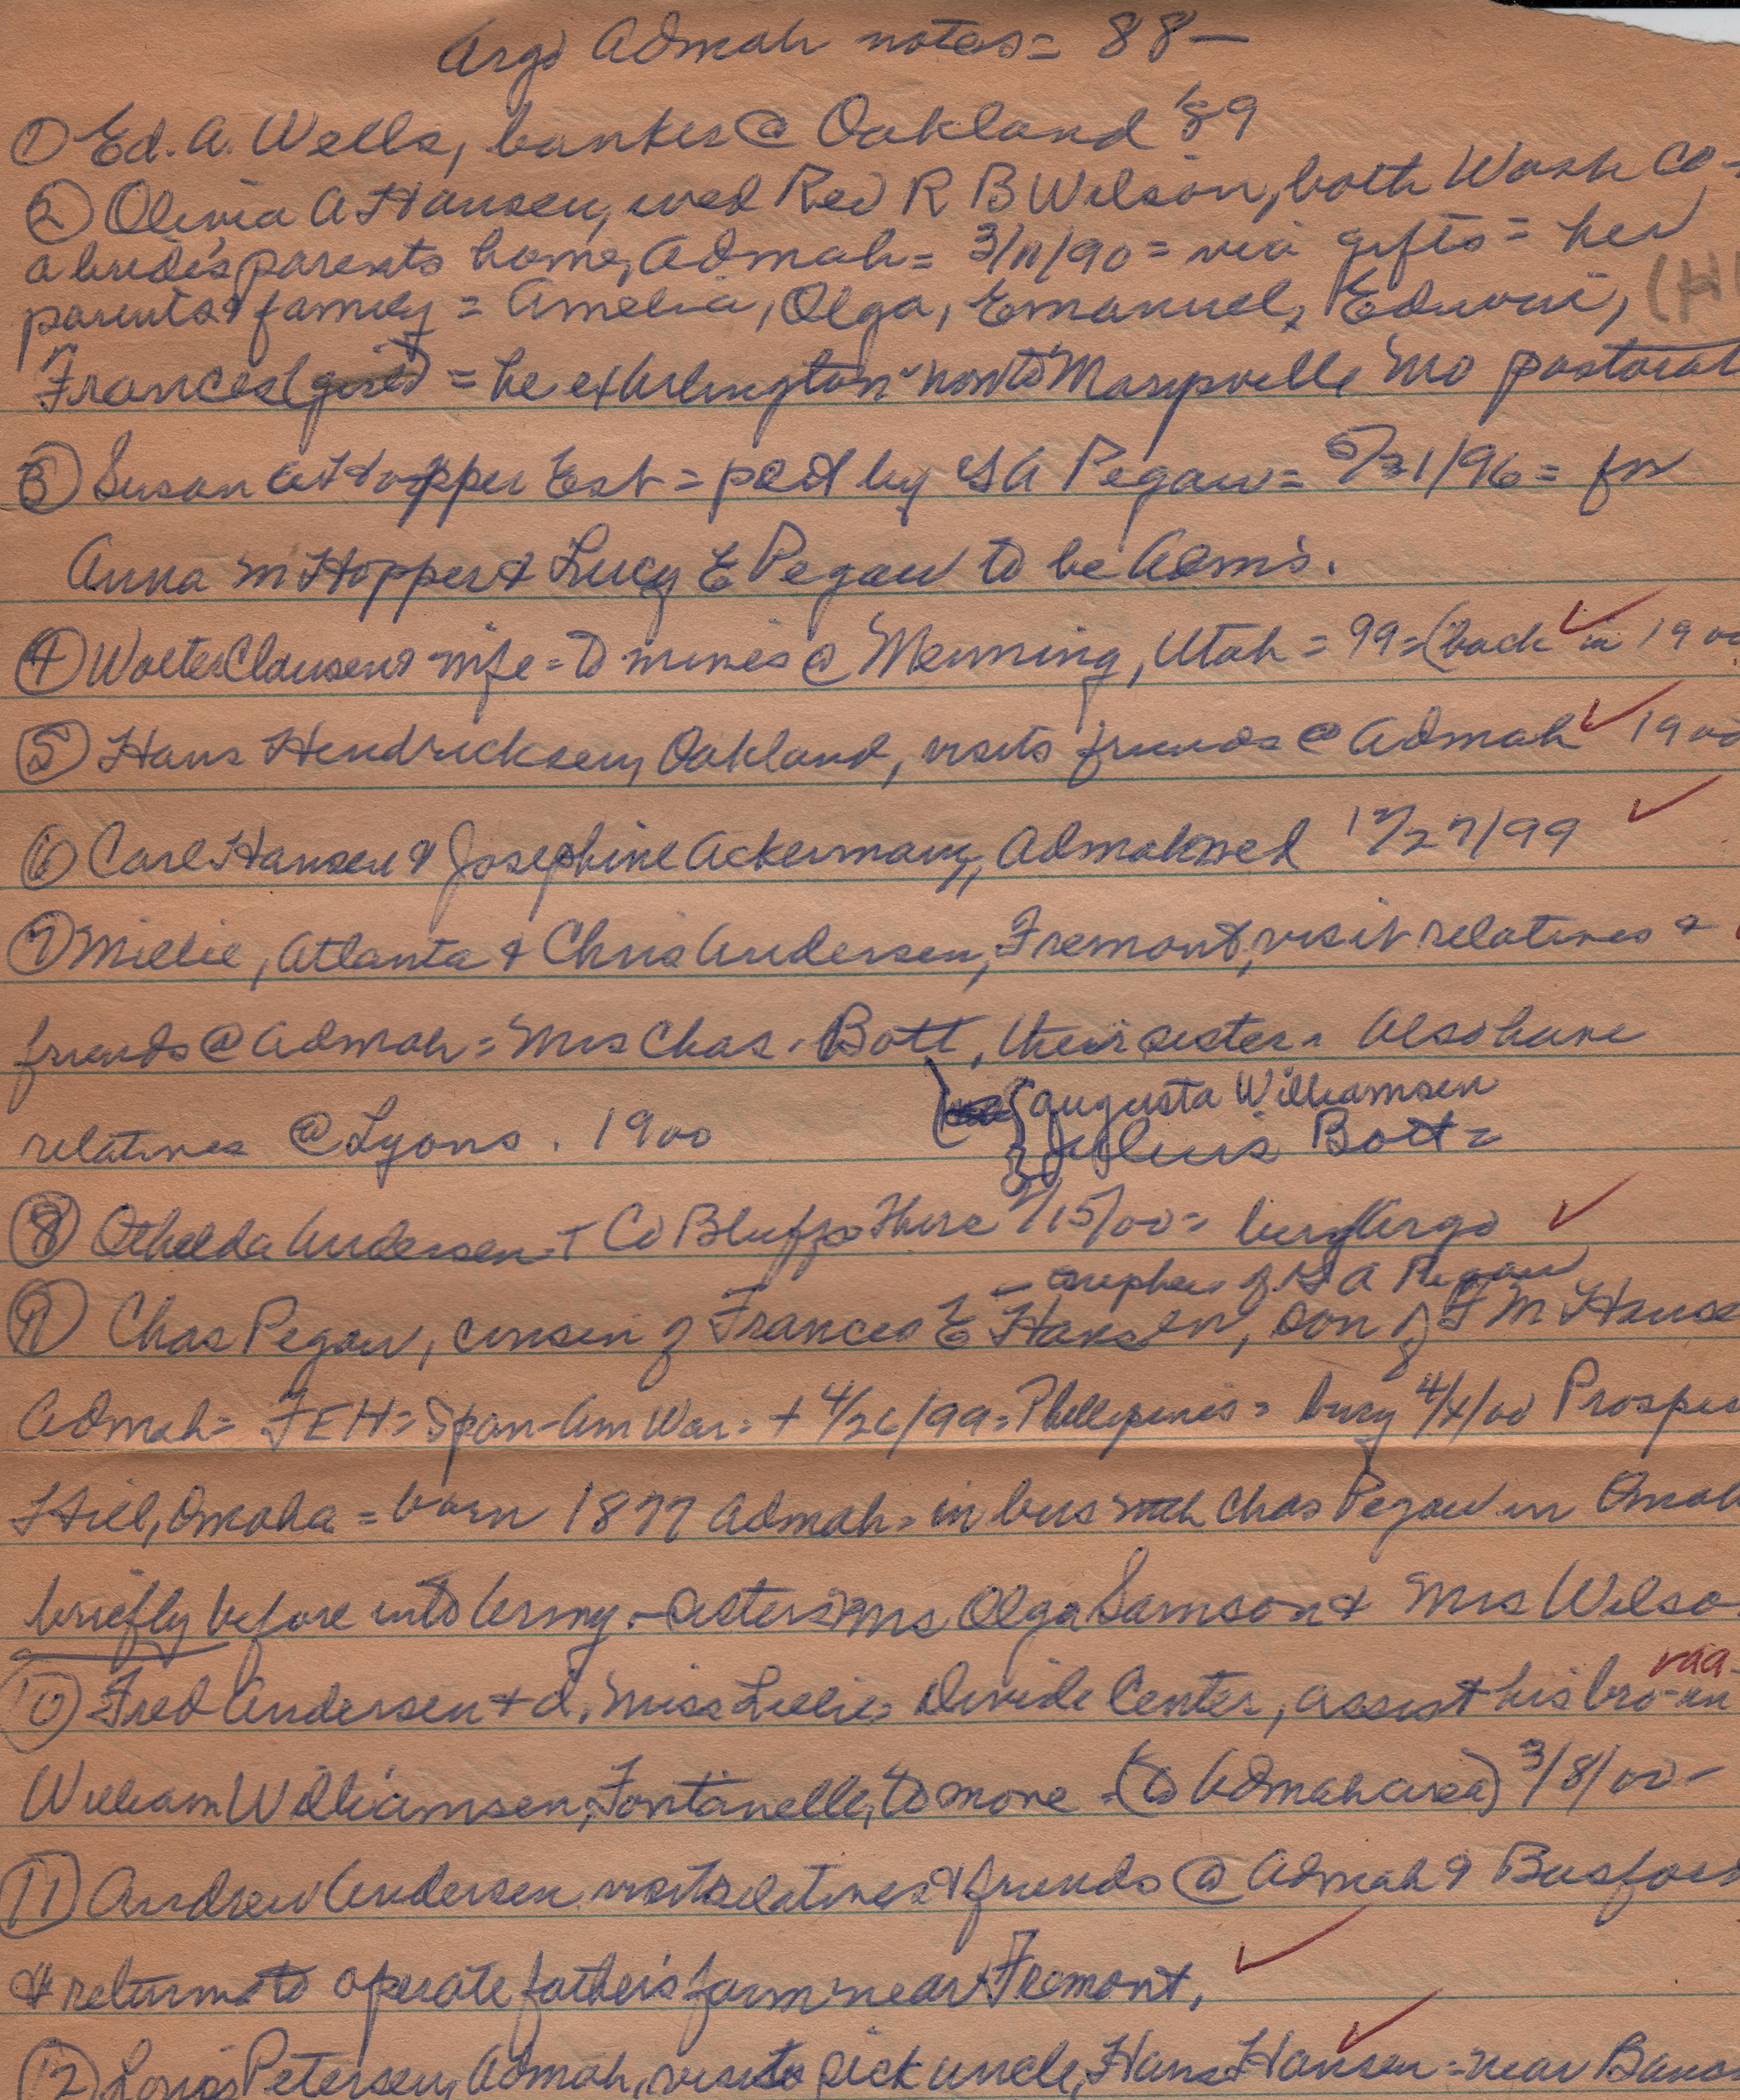 Argo Admah notes = 88 —
① Ed. A. Wells, banker @ Oakland '89
② Olivia A Hansen, wed Rev R B Wilson, both Wash Co -
@ bride's parents home, Admah = 3/11/90 = gifts = her
parents & family = Amelia, Olga, Emanuel, Edward, (H
Frances (girl) = he ex Arlington - now to Marysville Mo pastorate
③ Susan A Hopper Est = petd by G A Pegau = 5/21/96 = for
Anna M Hopper & Lucy E Pegau to be Adms.
④ Walter Clausen & wife = to mines @ Menning, Utah = 99 = (back in 1900
⑤ Hans Hendricksen, Oakland, visits friends @ Admah 1900
⑥ Carl Hansen & Josephine Ackermann, Admah wed 12/27/99
⑦ Millie, Atlanta & Chris Andersen, Fremont, visit relatives &
friends @ Admah = Mrs Chas. Bott, their sister = Also have
{ Augusta Williamsen
relatives @ Lyons. 1900 Julius Bott =
⑧ Othelda Andersen + Co Bluffs Thurs 2/15/00 = bury Argo
- nephew of G A Pegau
⑨ Chas Pegau, cousin of Frances E Hansen, son of F M Hanse
Admah = FEH = Span-Am War = + 4/26/99 = Phillipines = bury 4/4/00 Prospec
Hill, Omaha = born 1877 Admah = in bus with Chas Pegau in Omah
briefly before into Army. - sisters Mrs Olga Samson & Mrs Wilso
⑩ Fred Andersen & d, Miss Lillie, Divide Center, assist his bro-in
William Williamsen, Fontanelle, to move - (to Admah area) 3/8/00 -
⑪ Andrew Andersen visits relatives & friends @ Admah &
& return to operate father's farm near Fremont.
⑫ Louis Petersen, Admah, visits sick uncle, Hans Hansen = near